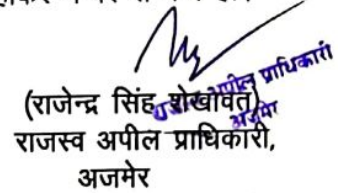 (राजेन्द्र सिंह शेखावत)
राजस्व अपील प्राधिकारी,
अजमेर
अपील प्राधिकारी